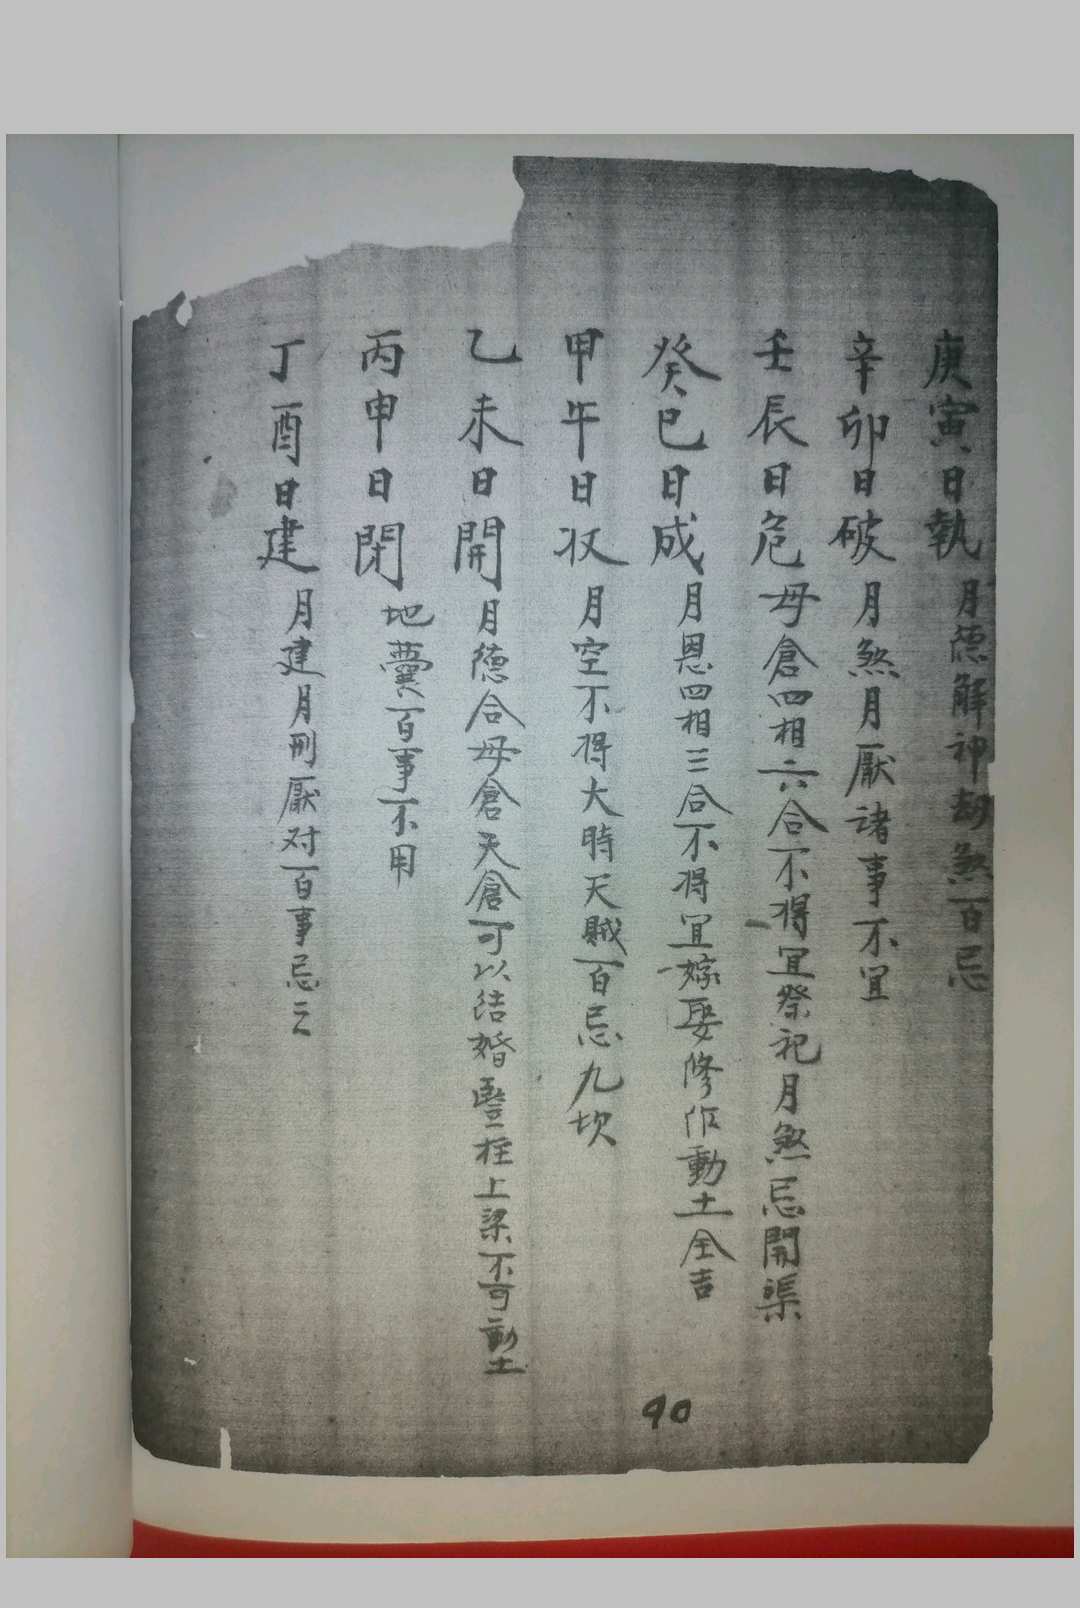 庚寅日執 月德解神劫煞百忌
辛卯日破 月煞月厭諸事不宜
壬辰日危 母倉四相六合不得宜祭祀月煞忌開渠
癸巳日成 月恩四相三合不得宜嫁娶修作動土全吉
甲午日収 月空不得大時天賊百忌九坎
乙未日開 月德合母倉天倉可以结婚竪柱上梁不可動土
丙申日閉 地囊百事不用
丁酉日建 月建月刑厭对百事忌之
90